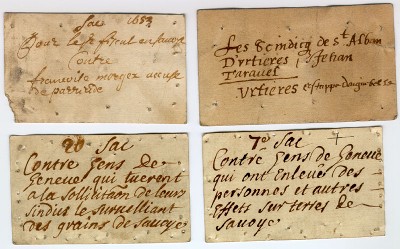 Sac 1683
Pour le Sr fiscal en Savoye
Contre
francoise mugex accuse
de parricide
Les Scindicq de st Alban
D'urtieres Jehan
Taravel
Urtieres
20 Sac
Contre Gens de
Geneue qui tuerent
a la sollicitaõn de leurs
Sindics le surveillant
des grains de Sauoye
7e Sac
Contre Gens de Geneue
qui ont Enleués des
personnes et autres
Effets sur terres de
Sauoye